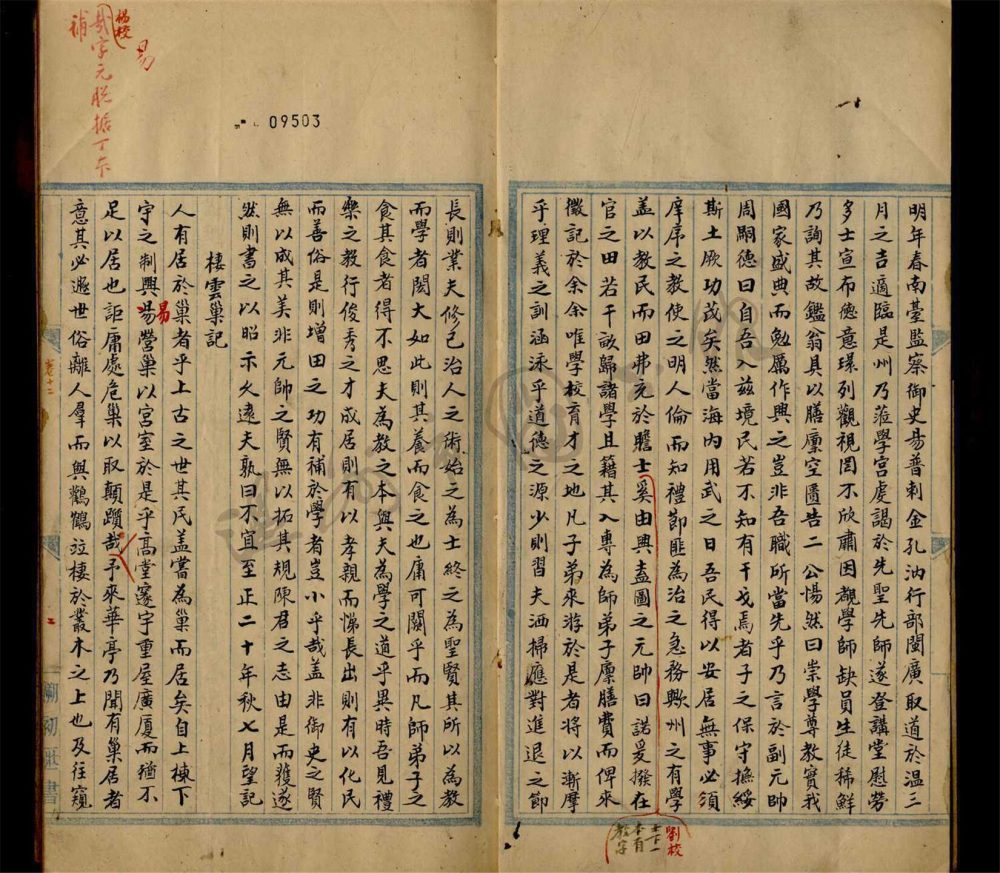 明年春南臺監察御史昜普剌金孔汭行部閩廣取道於温三
月之吉適臨是州乃蒞學宫䖍謁於先聖先師遂登講堂慰勞
多士宣布德意環列觀視罔不欣肅因覩學師缺員生徒稀鮮
乃詢其故鑑翁具以膳廩空匱告二公惕然曰崇學尊教實我
國家盛典而勉厲作興之豈非吾職所當先乎乃言於副元帥
周嗣德曰自吾入兹境民若不知有干戈焉者子之保守撫綏
斯土厥功茂矣然當海内用武之日吾民得以安居無事必須
庠序之教使之明人倫而知禮節匪為治之急務歟州之有學
盖以教民而田弗充於贍士奚由興盍圖之元帥曰諾爰撥在
官之田若干畝歸諸學且籍其入專為師弟子廪膳費而俾來
徵記於余余唯學校育才之地凡子弟來游於是者將以漸摩
乎理義之訓涵泳乎道德之源少則習夫洒掃應對進退之節
劉校
士下一
本有
教字
長則業夫修己治人之術始之為士終之為聖賢其所以為教
而學者閎大如此則其養而食之也庸可闕乎而凡師弟子之
食其食者得不思夫為教之本與夫為學之道乎異時吾見禮
樂之教行俊秀之才成居則有以孝親而悌長出則有以化民
而善俗是則增田之功有補於學者豈小乎哉盖非御史之賢
無以成其美非元帥之賢無以拓其規陳君之志由是而獲遂
然則書之以昭示久遠夫孰曰不宜至正二十年秋七月望記
棲雲巢記
人有居於巢者乎上古之世其民盖嘗為巢而居矣自上棟下
宇之制興昜營巢以宫室於是乎高堂邃宇重屋廣厦而猶不
易
足以居也詎庸處危巢以取顛躓哉予來華亭乃聞有巢居者
意其必遯世俗離人羣而與鸛鶴泣棲於叢木之上也及往窺
09503
易
楊校
哉字元脱據丁本
補
卷十三